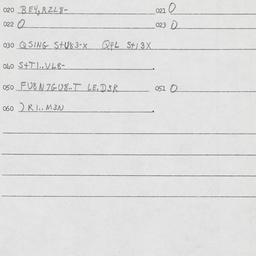 020 BEY,RZL8- 021 O
022 O 023 O
030 QSING StU83-X Q+L St13X
040 S+T1..VL8-
050 FU8N7GU8-T LE.D3R 051 O
060 )RI..M3N